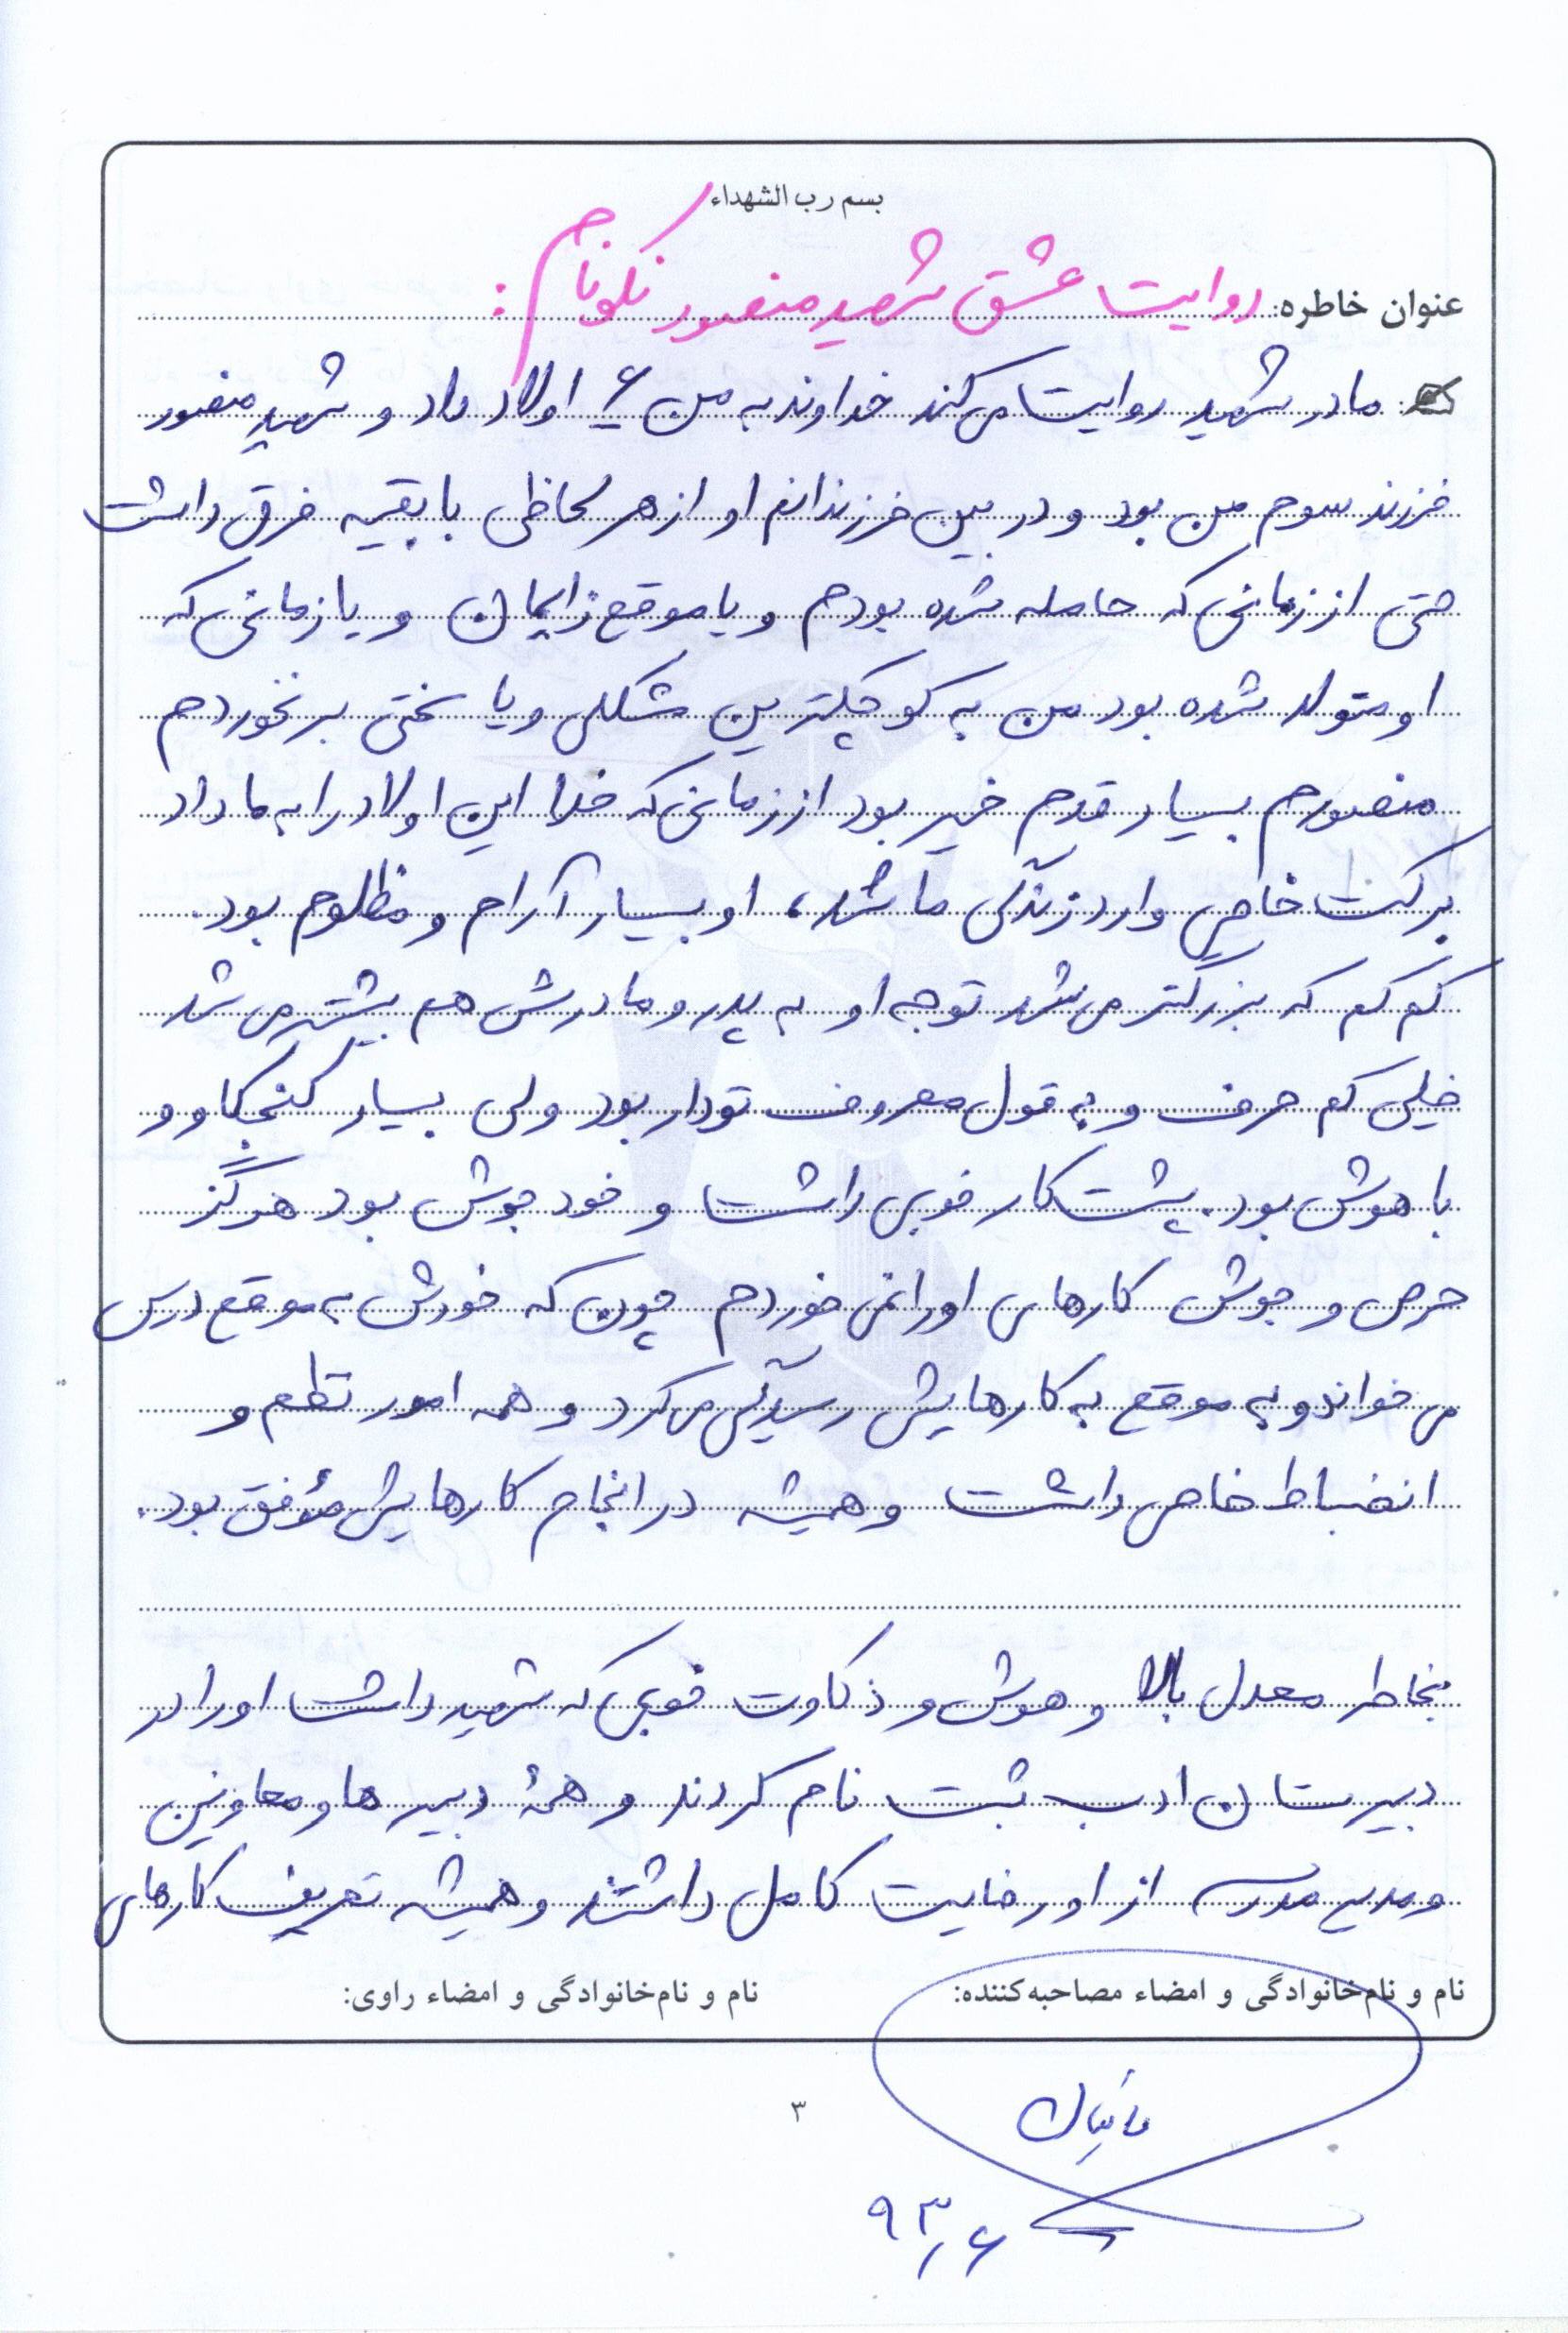 بسم رب الشهداء
عنوان خاطره: روایت عشق شهید منصور نکونام :
مادر شهید روایت می کند خداوند به من ۶ اولاد داد و شهید منصور
فرزند سوم من بود و در بین فرزندانم او از هر لحاظی با بقیه فرق داشت
حتی از زمانی که حامله شده بودم و یا موقع زایمان و یا زمانی که
او متولد شده بود من به کوچکترین مشکلی و یا سختی بر نخوردم
منصورم بسیار قدم خیر بود از زمانی که خدا این اولاد را به ما داد
برکت خاصی وارد زندگی ما شد، او بسیار آرام و مظلوم بود.
کم کم که بزرگتر می شد توجه او به پدر و مادرش هم بیشتر می شد
خیلی کم حرف و به قول معروف تودار بود ولی بسیار کنجکاو و
با هوش بود. پشت کار خوبی داشت و خود جوش بود هرگز
حرص و جوش کارهای او را نمی خوردم چون که خودش به موقع درس
می خواند و به موقع به کارهایش رسیدگی می کرد و همه امور نظم و
انضباط خاصی داشت و همیشه در انجام کارهایش مؤفق بود.
بخاطر معدل بالا و هوش و ذکاوت خوبی که شهید داشت او را در
دبیرستان ادب ثبت نام کردند و همهٔ دبیر ها و معاونین
و مدیر مدرسه از او رضایت کامل داشتند و همیشه تعریف کارهای
نام و نام‌خانوادگی و امضاء مصاحبه‌کننده:
نام و نام‌خانوادگی و امضاء راوی:
۳
۹۳/۶